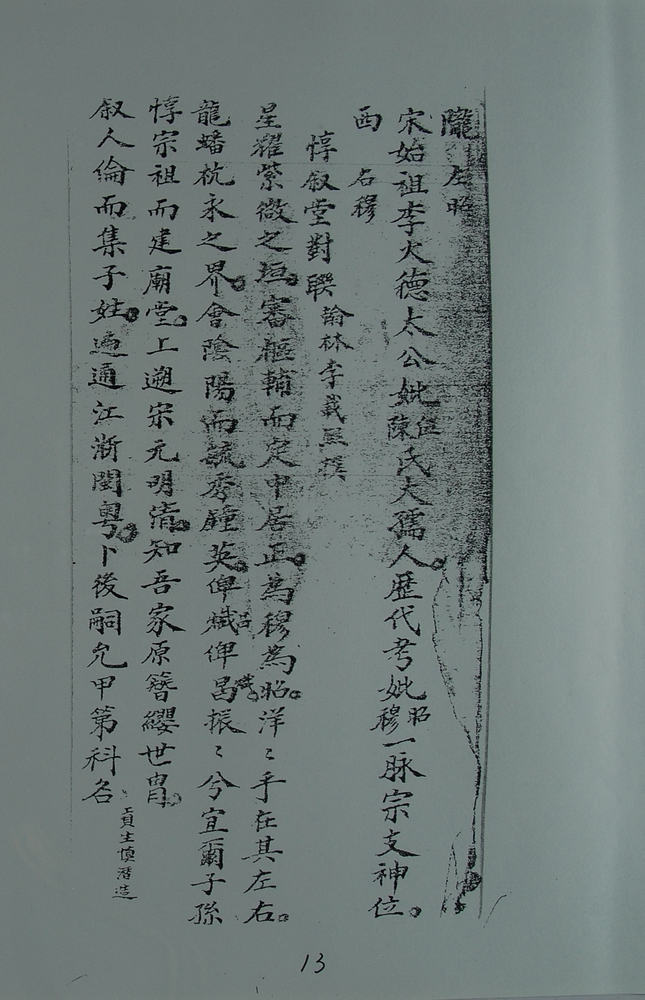 隴 左昭
宋始祖李火德太公妣伍陳氏大孺人歷代考妣昭穆一脉宗支神位
西 右穆
惇叙堂對聯 翰林李載熙撰
星耀紫微之垣審樞輔而定中居正為穆為昭洋〻乎在其左右
龍蟠杭永之界會陰陽而毓秀鍾英俾熾俾昌振〻兮宜爾子孫
惇宗祖而建廟堂上遡宋元明清知吾家原簪纓世胄
叙人倫而集子姓遍通江浙閩粵卜後嗣允甲第科名
貢生慎潛造
13